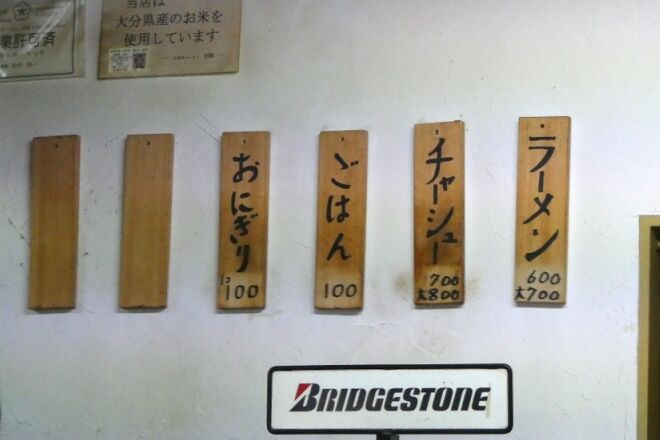 業許可済
当店は
大分県産のお米を
使用しています
ラーメン
600
大700
チャーシュー
700
大800
ごはん
100
おにぎり
1コ
100
BRIDGESTONE